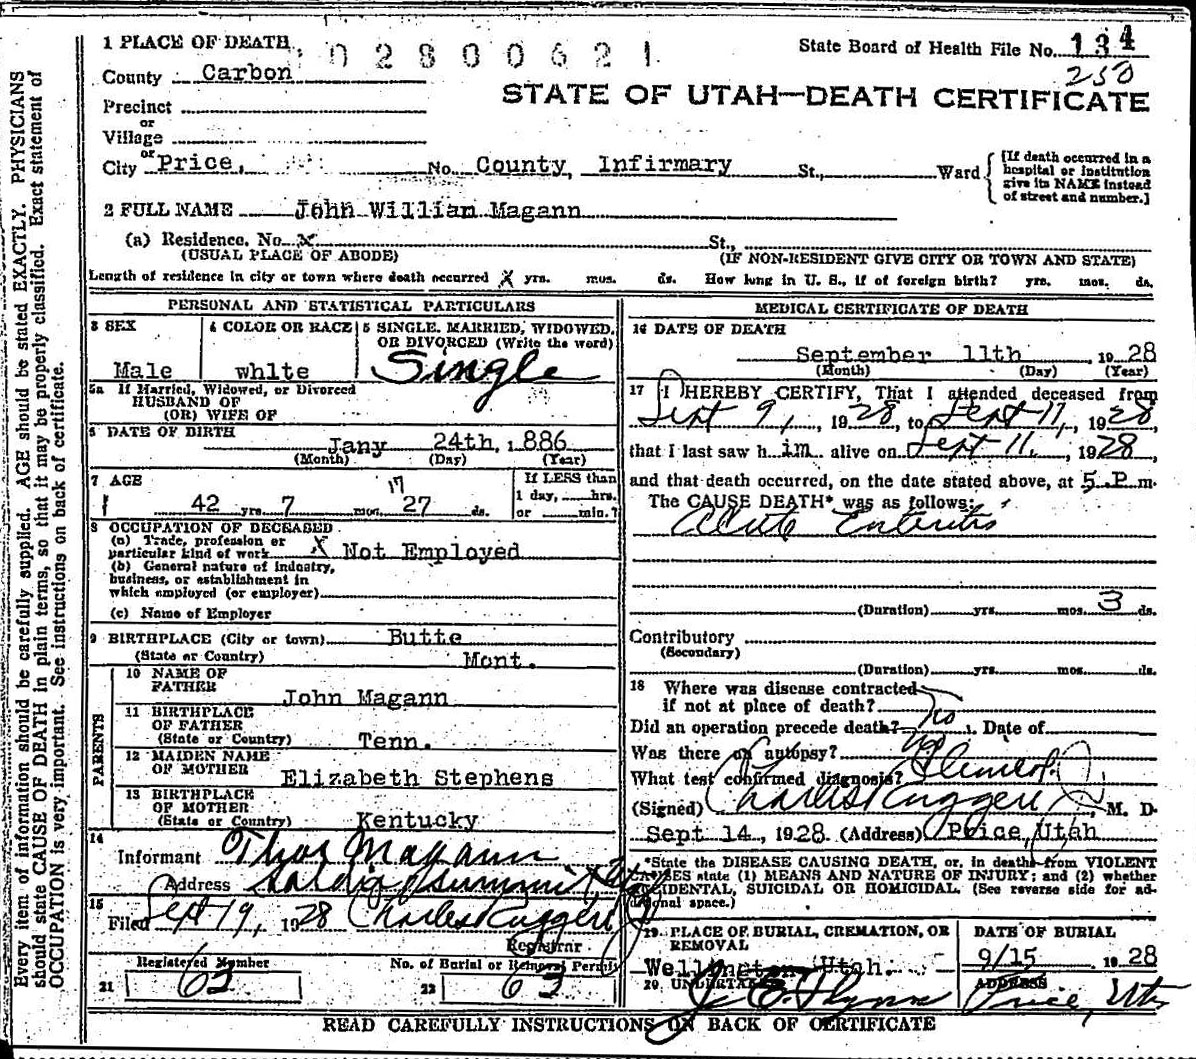 1 PLACE OF DEATH
02800621
State Board of Health File No. 134
County Carbon
250
Precinct
STATE OF UTAH—DEATH CERTIFICATE
or
Village
or
City Price, No. County Infirmary St., Ward
[If death occurred in a hospital or institution give its NAME instead of street and number.]
2 FULL NAME John William Magann
(a) Residence. No. X St.,
(USUAL PLACE OF ABODE) (IF NON-RESIDENT GIVE CITY OR TOWN AND STATE)
Length of residence in city or town where death occurred X yrs. mos. ds. How long in U. S., if of foreign birth? yrs. mos. ds.
PERSONAL AND STATISTICAL PARTICULARS
3 SEX
Male
4 COLOR OR RACE
white
5 SINGLE, MARRIED, WIDOWED, OR DIVORCED (Write the word)
Single
5a If Married, Widowed, or Divorced
HUSBAND OF
(OR) WIFE OF
6 DATE OF BIRTH
Jany 24th, 1886
(Month) (Day) (Year)
7 AGE
42 yrs. 7 mos. 27 ds.
17
If LESS than
1 day, hrs.
or min.?
8 OCCUPATION OF DECEASED
(a) Trade, profession or
particular kind of work X Not Employed
(b) General nature of industry,
business, or establishment in
which employed (or employer)
(c) Name of Employer
9 BIRTHPLACE (City or town) Butte
(State or Country) Mont.
PARENTS
10 NAME OF
FATHER John Magann
11 BIRTHPLACE
OF FATHER
(State or Country) Tenn.
12 MAIDEN NAME
OF MOTHER Elizabeth Stephens
13 BIRTHPLACE
OF MOTHER
(State or Country) Kentucky
14
Informant Thos Magann
Address Summit,
15
Filed Sept 19, 1928 Charles Ruggeri
Registrar
Registered Number
21 63
No. of Burial or Removal Permit
22 63
MEDICAL CERTIFICATE OF DEATH
16 DATE OF DEATH
September 11th, 1928
(Month) (Day) (Year)
17 I HEREBY CERTIFY, That I attended deceased from
Sept 9, 1928, to Sept 11, 1928,
that I last saw him alive on Sept 11, 1928,
and that death occurred, on the date stated above, at 5 P.m.
The CAUSE DEATH* was as follows:
Acute Enteritis
(Duration) yrs. mos. 3 ds.
Contributory
(Secondary)
(Duration) yrs. mos. ds.
18 Where was disease contracted
if not at place of death?
Did an operation precede death? No Date of
Was there an autopsy? no
What test confirmed diagnosis? Clinical
(Signed) Charles Ruggeri, M. D.
Sept 14, 1928 (Address) Price, Utah
*State the DISEASE CAUSING DEATH, or, in deaths from VIOLENT
CAUSES state (1) MEANS AND NATURE OF INJURY; and (2) whether
ACCIDENTAL, SUICIDAL OR HOMICIDAL. (See reverse side for ad-
ditional space.)
19. PLACE OF BURIAL, CREMATION, OR
REMOVAL
Wellington Utah.
DATE OF BURIAL
9/15 1928
20. UNDERTAKER J. E. Flynn
ADDRESS
Price, Utah
READ CAREFULLY INSTRUCTIONS ON BACK OF CERTIFICATE
Every item of information should be carefully supplied. AGE should be stated EXACTLY. PHYSICIANS
should state CAUSE OF DEATH in plain terms, so that it may be properly classified. Exact statement of
OCCUPATION is very important. See instructions on back of certificate.